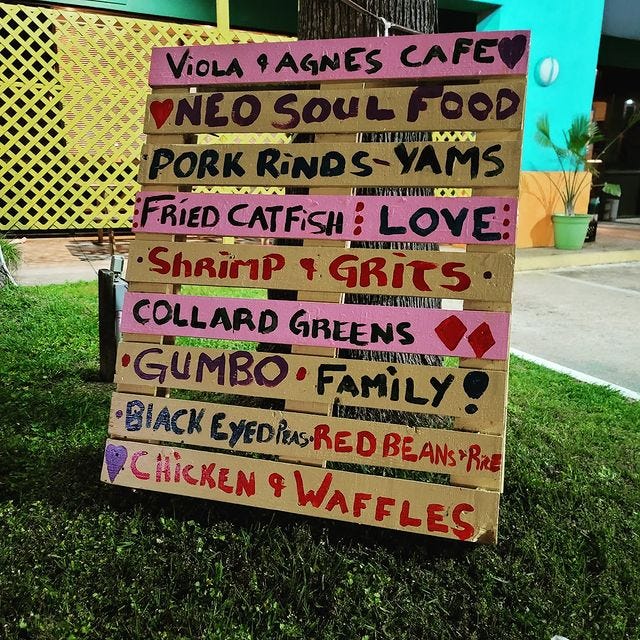 VIOLA & AGNES CAFE
NEO SOUL FOOD
PORK RINDS-YAMS
FRIED CATFISH : LOVE:
SHRIMP & GRITS
COLLARD GREENS
GUMBO • FAMILY!
BLACK EYED PEAS • RED BEANS & RICE
CHICKEN & WAFFLES